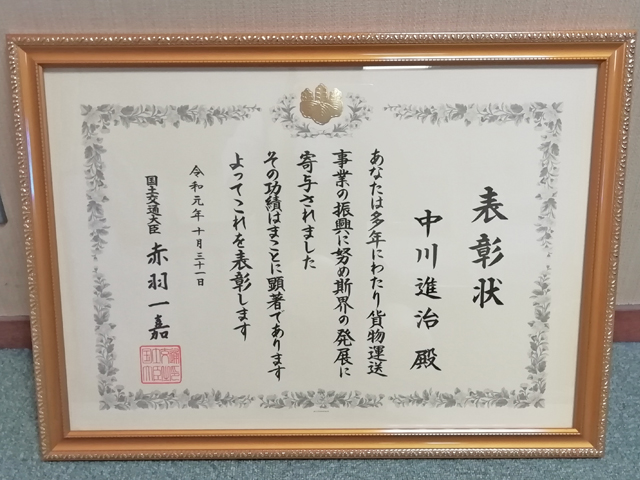 表彰状
中川進治 殿
あなたは多年にわたり貨物運送
事業の振興に努め斯界の発展に
寄与されました
その功績はまことに顕著であります
よってこれを表彰します
令和元年十月三十一日
国土交通大臣 赤羽一嘉